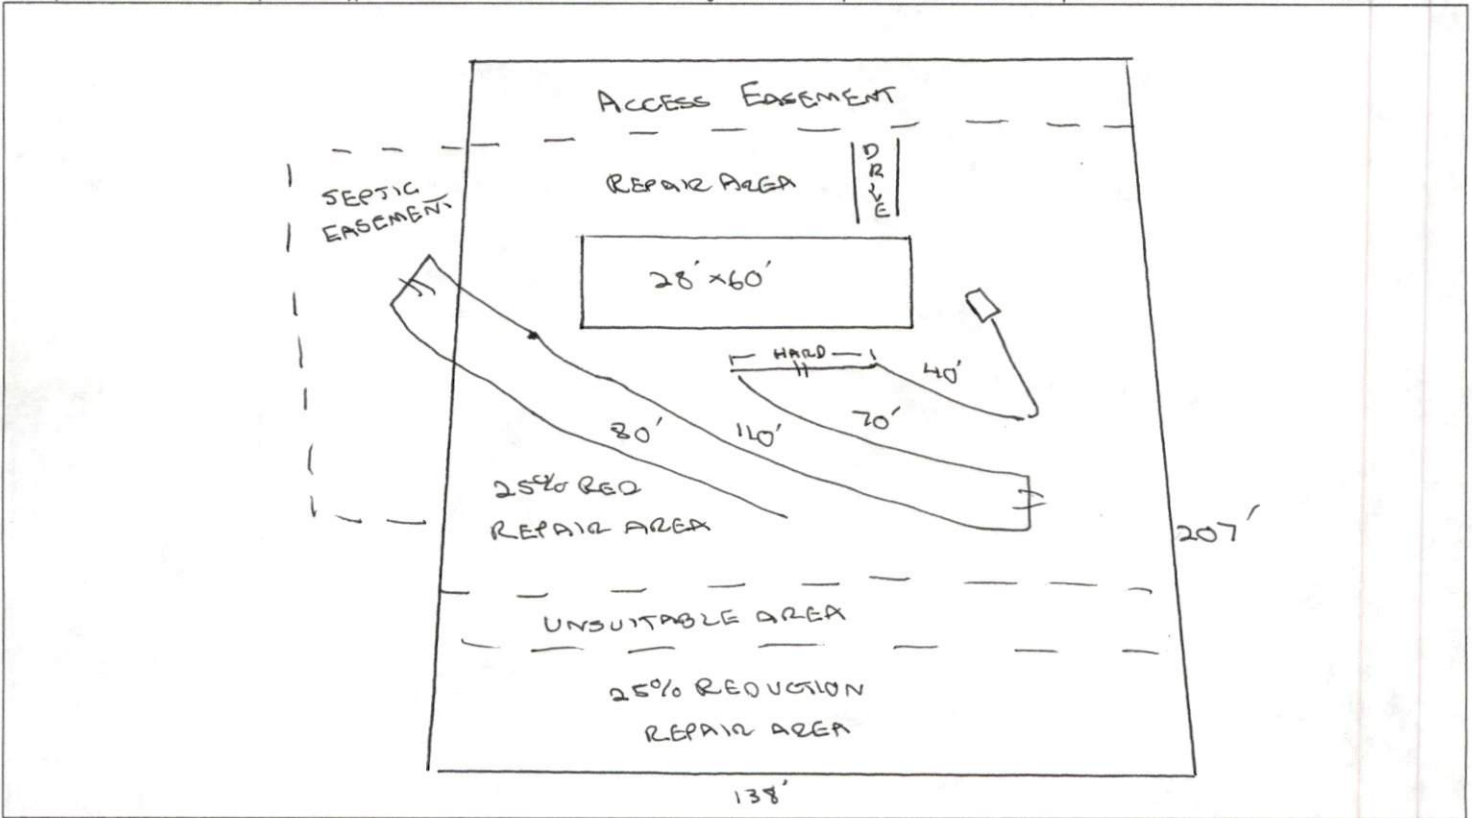 ACCESS EASEMENT
SEPTIC
EASEMENT
REPAIR AREA
DRIVE
28' x 60'
HARD
40'
70'
80'
110'
25% RED
REPAIR AREA
207'
UNSUITABLE AREA
25% REDUCTION
REPAIR AREA
138'